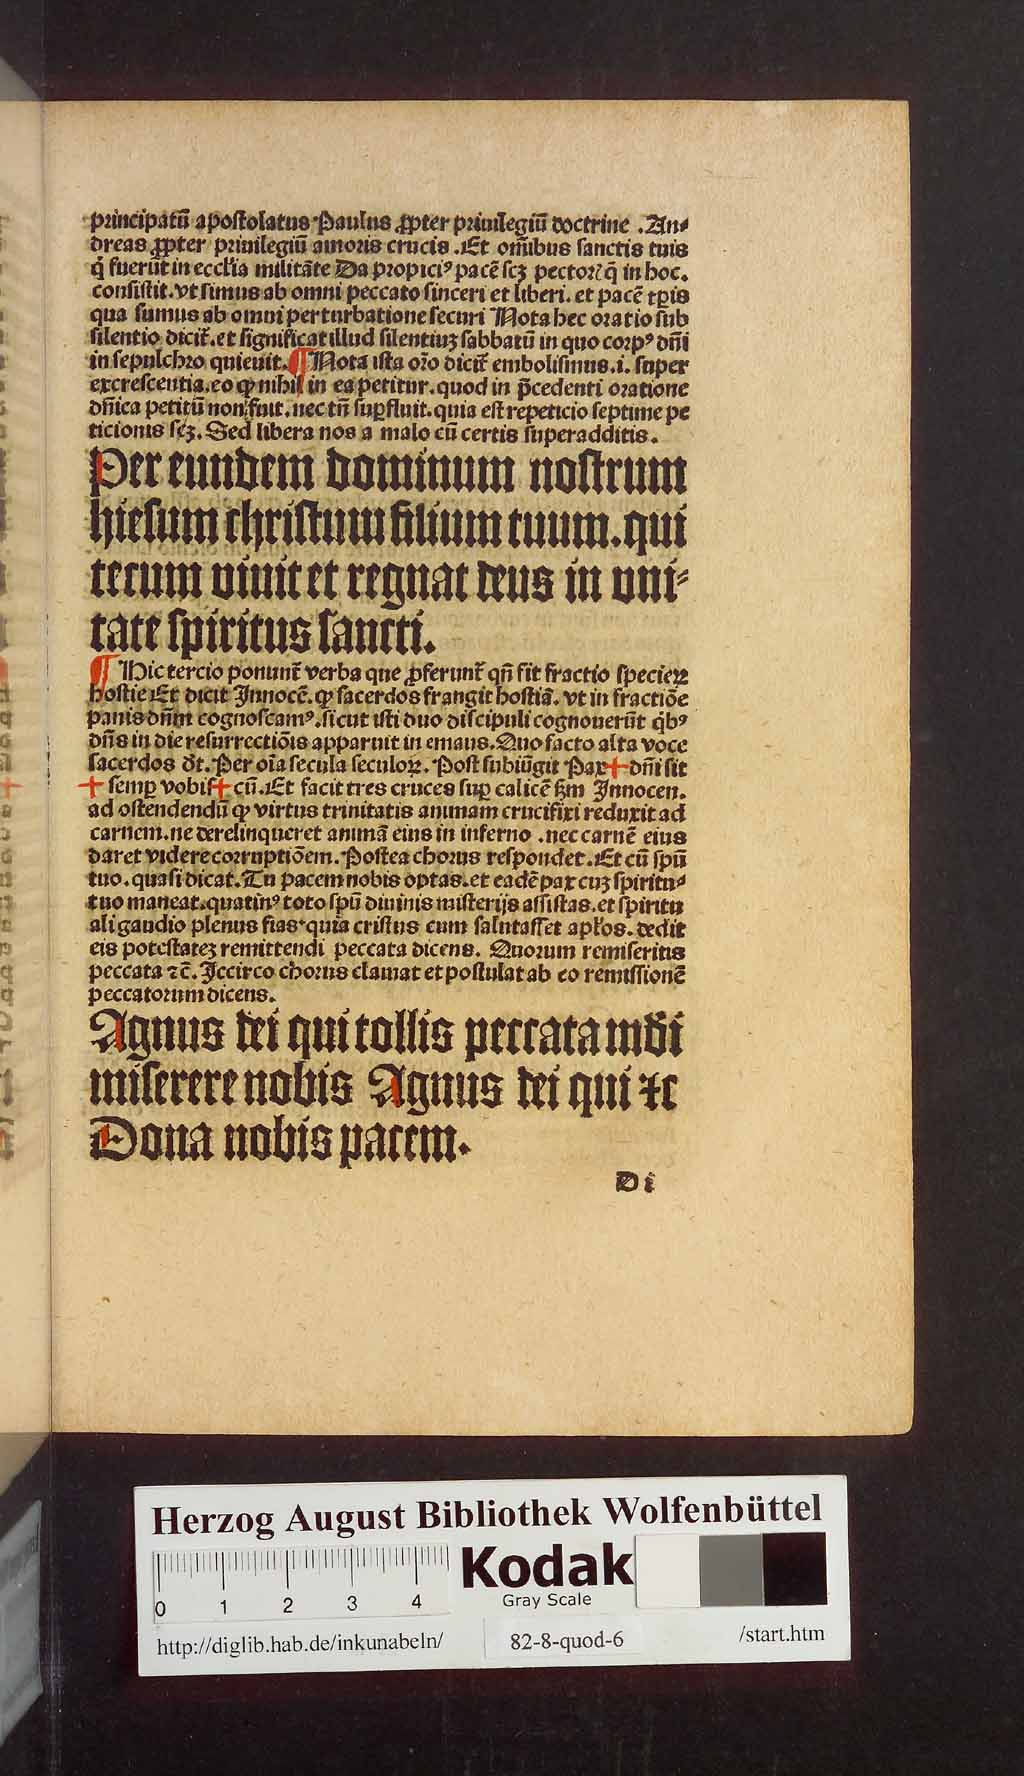 principatū apostolatus Paulus ꝓpter priuilegiū doctrine .An⸗
dreas ꝓpter priuilegiū amoris crucis .Et om̄ibus sanctis tuis
q̇ fuerūt in eccl'ia militāte Da propiciꝰ pacē scꝫ pectoris q̄ in hoc.
consistit.vt simus ab omni peccato sinceri et liberi. et pacē tp̄is
qua sumus ab omni perturbatione securi Nota hec oratio sub
silentio dicit̄.et significat illud silentiuꝫ sabbatū in quo corpꝰ dn̄i
in sepulchro quieuit.¶ Nota ista or̄o dicit̄ embolismus.i. super
excrescentia.eo ꝙ nihil in ea petitur.quod in p̄cedenti oratione
dn̄ica petitū non fuit.nec tn̄ suꝑfluit.quia est repeticio septime pe
ticionis scꝫ.Sed libera nos a malo cū certis superadditis.
Per eundem dominum nostrum
hiesum christum filium tuum.qui
tecum viuit et regnat deus in vni⸗
tate spiritus sancti.
¶ Hic tercio ponunt̄ verba que ꝓferunt̄ qn̄ fit fractio specieꝝ
hostie Et dicit Innocē.ꝙ sacerdos frangit hostiā.vt in fractiōe
panis dn̄m cognoscamꝰ.sicut isti duo discipuli cognouerūt q̇bꝰ
dn̄s in die resurrectiōis apparuit in emaus.Quo facto alta voce
sacerdos dt̄.Per oīa secula seculoꝝ.Post subiūgit Pax + dn̄i sit
+ semꝑ vobis + cū.Et facit tres cruces suꝑ calicē ẜm Innocen.
ad ostendendū ꝙ virtus trinitatis animam crucifixi reduxit ad
carnem.ne derelinqueret animā eius in inferno .nec carnē eius
daret videre corruptiōem.Postea chorus respondet.Et cū spū
tuo.quasi dicat.Tu pacem nobis optas.et eadē pax cuꝫ spiritu⸗
tuo maneat.quatinꝰ toto spū diuinis misterijs assistas.et spiritu
ali gaudio plenus fias.quia cristus cum salutasset apl'os.dedit
eis potestateꝫ remittendi peccata dicens. Quorum remiseritis
peccata ⁊c̄.Iccirco chorus clamat et postulat ab eo remissionē
peccatorum dicens.
Agnus dei qui tollis peccata mūdi
miserere nobis Agnus dei qui ⁊c
Dona nobis pacem.
D i
Herzog August Bibliothek Wolfenbüttel
Kodak
Gray Scale
0 1 2 3 4
http://diglib.hab.de/inkunabeln/ 82-8-quod-6 /start.htm